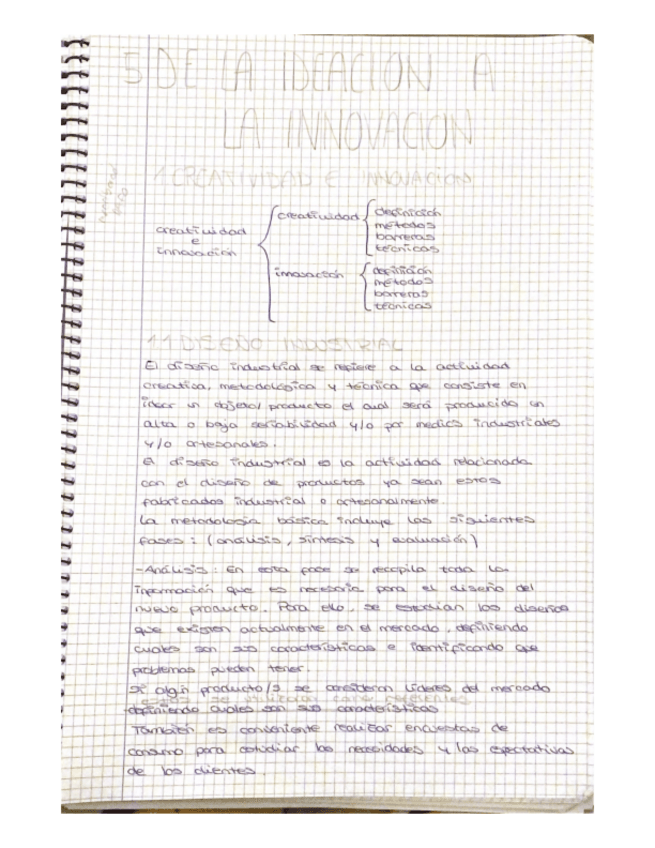 5 DE LA IDEACION A
LA INNOVACION
1 CREATIVIDAD E INNOVACION
creatividad
e
innovación
creatividad
definición
métodos
barreras
técnicas
innovación
definición
métodos
barreras
técnicas
1.1 DISEÑO INDUSTRIAL
El diseño industrial se refiere a la actividad
creativa, metodológica y técnica que consiste en
idear un objeto/producto el cual será producido en
alta o baja seriabilidad y/o por medios industriales
y/o artesanales.
El diseño industrial es la actividad relacionada
con el diseño de productos ya sean estos
fabricados industrial o artesanalmente.
La metodología básica incluye las siguientes
fases: (análisis, síntesis y evaluación)
-Análisis: En esta fase se recopila toda la
información que es necesaria para el diseño del
nuevo producto. Para ello, se estudian los diseños
que existen actualmente en el mercado, definiendo
cuales son sus características e identificando que
problemas pueden tener.
Si algún producto/s se consideran líderes del mercado
estos se utilizarán como referentes
definiendo cuales son sus características
También es conveniente realizar encuestas de
consumo para estudiar las necesidades y las expectativas
de los clientes.